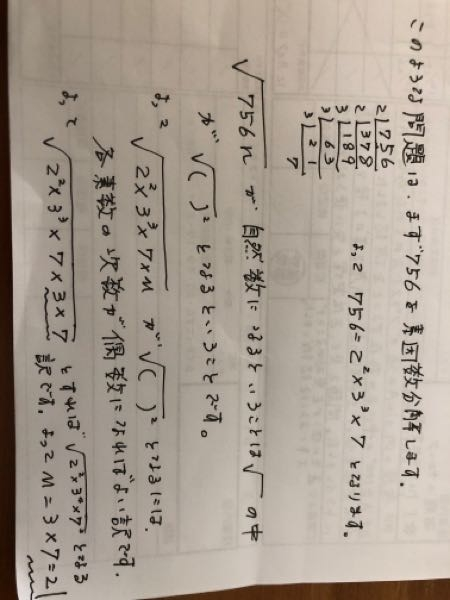 このような問題は、まず756を素因数分解します。
2)756
2)378
3)189
3)63
3)21
7
よって 756=2²×3³×7 となります。
√756n が自然数になるということは√ の中
が √( )² となるということです。
よって √2²×3³×7×n が √( )² となるには、
各素数の次数が偶数になればよい訳です。
よって √2²×3³×7×3×7 とすれば √2²×3⁴×7² となる
訳です。よって n=3×7=21